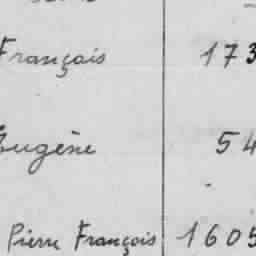 François 173
Eugène 54
Pierre François 1605